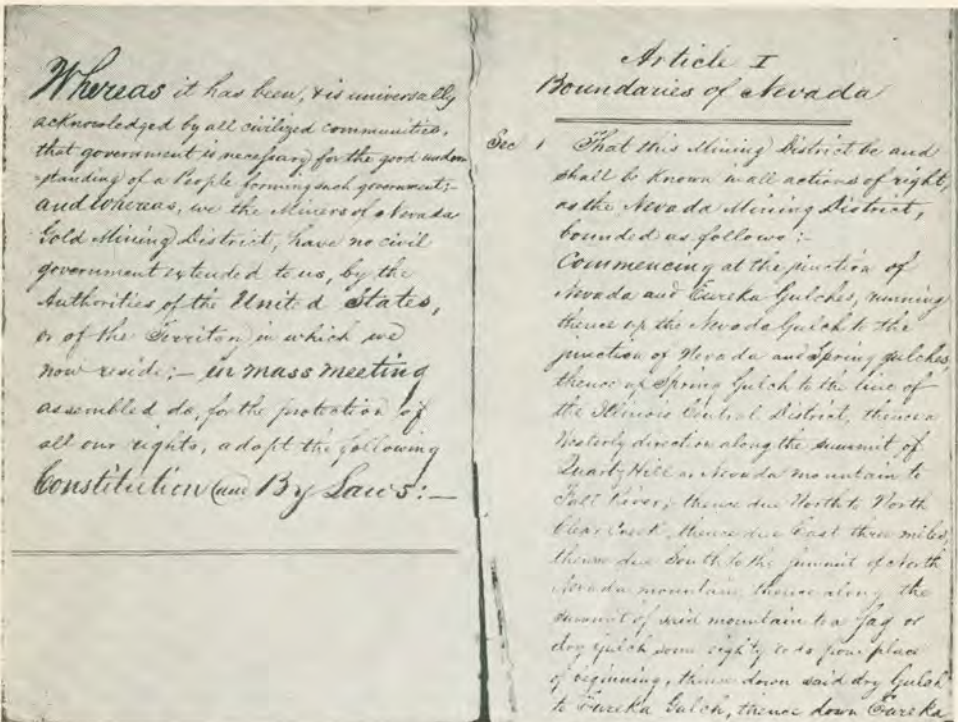 Whereas it has been, & is universally
acknowledged by all civilized communities,
that government is necessary for the good under
-standing of a People forming such government;-
and Whereas, we the Miners of Nevada
Gold Mining District, have no civil
government extended to us, by the
Authorities of the United States,
or of the Territory in which we
now reside;- in mass meeting
assembled do, for the protection of
all our rights, adopt the following
Constitution and By Laws:-
Article I
Boundaries of Nevada
Sec 1 That this Mining District be and
shall be known in all actions of right,
as the Nevada Mining District,
bounded as follows:-
Commencing at the junction of
Nevada and Eureka Gulches, running
thence up the Nevada Gulch to the
junction of Nevada and Spring gulches,
thence up Spring Gulch to the line of
the Illinois Central District, thence a
Westerly direction along the summit of
Quartz Hill or Nevada mountain to
Fall River; thence due North to North
Clear Creek, thence due East three miles,
thence due South to the summit of North
Nevada mountain, thence along the
summit of said mountain to a
dry gulch some eighty rods from place
of beginning, thence down said dry Gulch
to Eureka Gulch, thence down Eureka